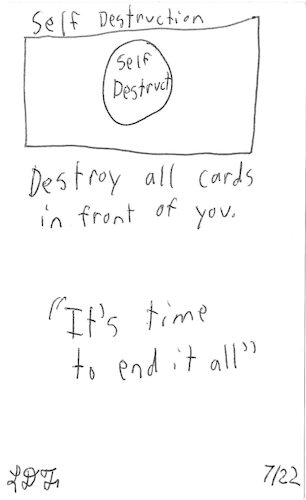 Self Destruction
Self
Destruct
Destroy all cards
in front of you.
"It's time
to end it all"
7/22